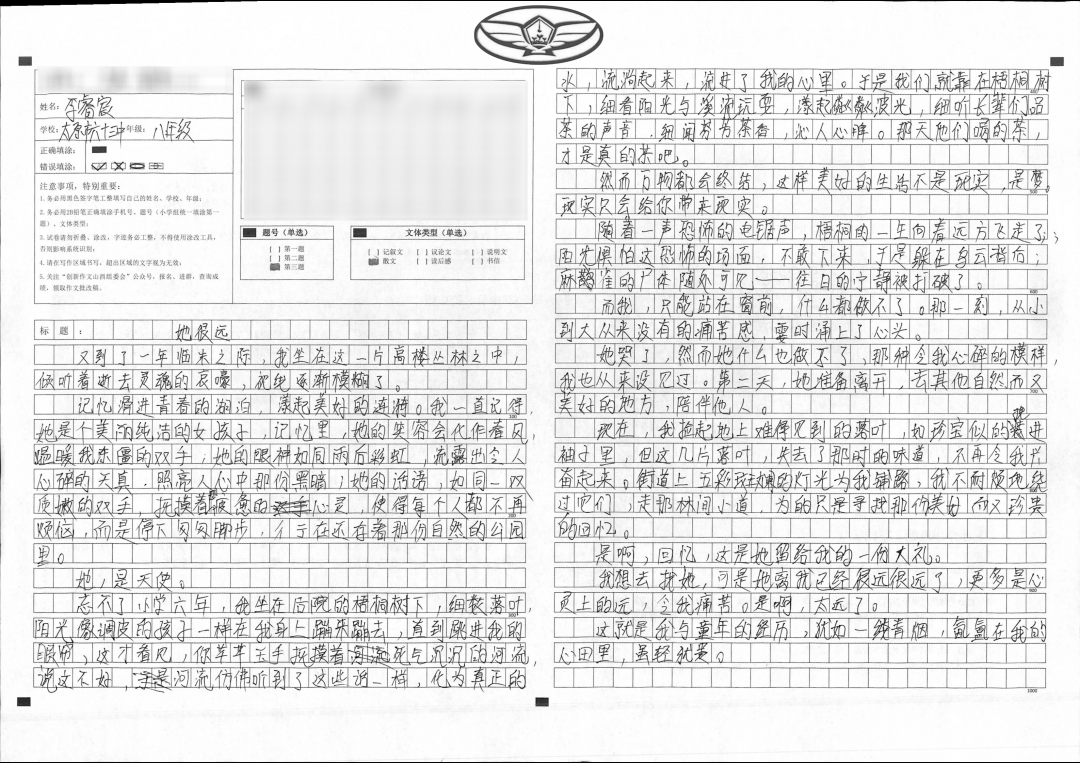 姓名：李睿宸
学校：太原市六十三中 年级：八年级
正确填涂：
错误填涂：
注意事项，特别重要：
1.务必用黑色签字笔工整填写自己的姓名、学校、年级；
2.务必用2B铅笔正确填涂手机号、题号（小学组统一填涂第一
题）、文体类型；
3.试卷请勿折叠、涂改，字迹务必工整，不得使用涂改工具，
否则影响系统识别；
4.请在写作区域书写，超出区域的文字视为无效；
5.关注“创新作文山西组委会”公众号，报名、进群、查询成
绩，领取作文批改稿。
题号（单选）
[ ] 第一题
[ ] 第二题
第三题
文体类型（单选）
[ ] 记叙文 [ ] 议论文 [ ] 说明文
散文 [ ] 读后感 [ ] 书信
标 题：
她很远
又到了一年临末之际，我坐在这一片高楼丛林之中，
倾听着逝去灵魂的哀嚎，视线逐渐模糊了。
记忆滑进青春的湖泊，漾起美好的涟漪。我一直记得，
100
她是个美丽纯洁的女孩子，记忆里，她的笑容会化作春风，
温暖我冻僵的双手；她的眼神如同雨后彩虹，流露出令人
心碎的天真，照亮人心中那份黑暗；她的话语，如同一双
质嫩的双手，抚摸着疲惫的心灵，使得每个人都不再
200
烦恼，而是停下匆匆脚步，行于在还存着那份自然的公园
里。
她，是天使。
忘不了小学六年，我坐在后院的梧桐树下，细数落叶，
300
阳光像调皮的孩子一样在我身上蹦来蹦去，直到跳进我的
眼帘，这才看见，你芊芊玉手抚摸着死气沉沉的河流，
说这不好，于是河流仿佛听到了这些话一样，化为真正的
水，流淌起来，流进了我的心里。于是我们就靠在梧桐树
400
下，细看阳光与溪流沉耍，漾起粼粼波光，细听长辈们品
茶的声音，细闻芳芳茶香，沁人心脾。那天他们喝的茶，
才是真的茶吧。
然而万物都会终结，这样美好的生活不是现实，是梦。
500
现实只会给你带来现实。
随着一声恐怖的电锯声，梧桐的一年向着远方飞走了；
阳光惧怕这恐怖的场面，不敢下来，于是躲在乌云背后；
麻雀的尸体随处可见——往日的宁静被打破了。
600
而我，只能站在窗前，什么都做不了。那一刻，从小
到大从来没有的痛苦感，霎时涌上了心头。
她哭了，然而她什么也做不了，那种令我心碎的模样，
我也从来没见过。第二天，她准备离开，去其他自然而又
700
美好的地方，陪伴他人。
现在，我抱起地上难得见到的落叶，如珍宝似的藏进
袖子里，但这几片落叶，失去了那时的味道，不再令我兴
奋起来。街道上五彩斑斓的灯光为我铺路，我不耐烦地绕
800
过它们，走那林间小道，为的只是寻找那份美好而又珍贵
的回忆。
是啊，回忆，这是她留给我的一份大礼。
我想去找她，可是她离我已经很远很远了，更多是心
900
灵上的远，令我痛苦。是啊，太远了。
这就是我与童年的经历，犹如一缕青烟，氤氲在我的
心田里，虽轻就爱。
1000